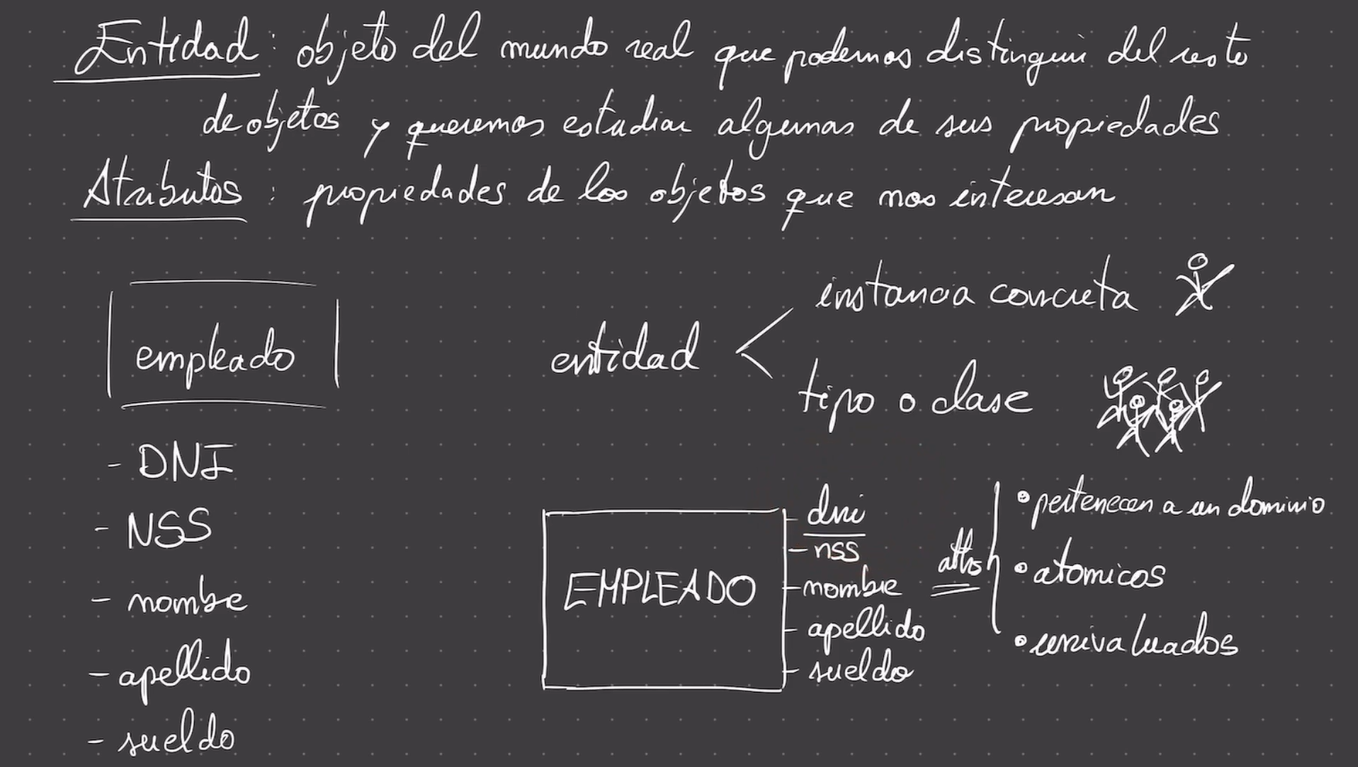 Entidad: objeto del mundo real que podemos distinguir del resto
de objetos y queremos estudiar algunas de sus propiedades
Atributos: propiedades de los objetos que nos interesan
empleado
- DNI
- NSS
- nombre
- apellido
- sueldo
entidad
instancia concreta
tipo o clase
EMPLEADO
- dni
- nss
- nombre
- apellido
- sueldo
attos
• pertenecen a un dominio
• atomicos
• univaluados